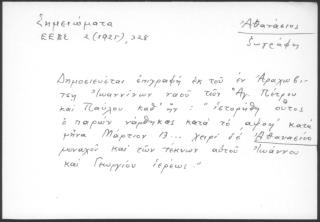 Σημειώματα
Ἀθανάσιος
ΕΕΒΣ 2 (1925), 328
ζωγράφος
Δημοσιεύεται ἐπιγραφὴ ἐκ τοῦ ἐν Ἀραχωβί-
τσῃ Ἰωαννίνων ναοῦ τῶν Ἁγ. Πέτρου
καὶ Παύλου καθ' ἥν: "ἱστορήθη οὗτος
ὁ παρὼν νάρθηκας κατὰ τὸ
κατὰ
μῆνα Μάρτιον 13... χειρὶ δὲ Ἀθανασίου
μοναχοῦ καὶ τῶν τέκνων αὐτοῦ Ἰωάννου
καὶ Γεωργίου ἱερέως."